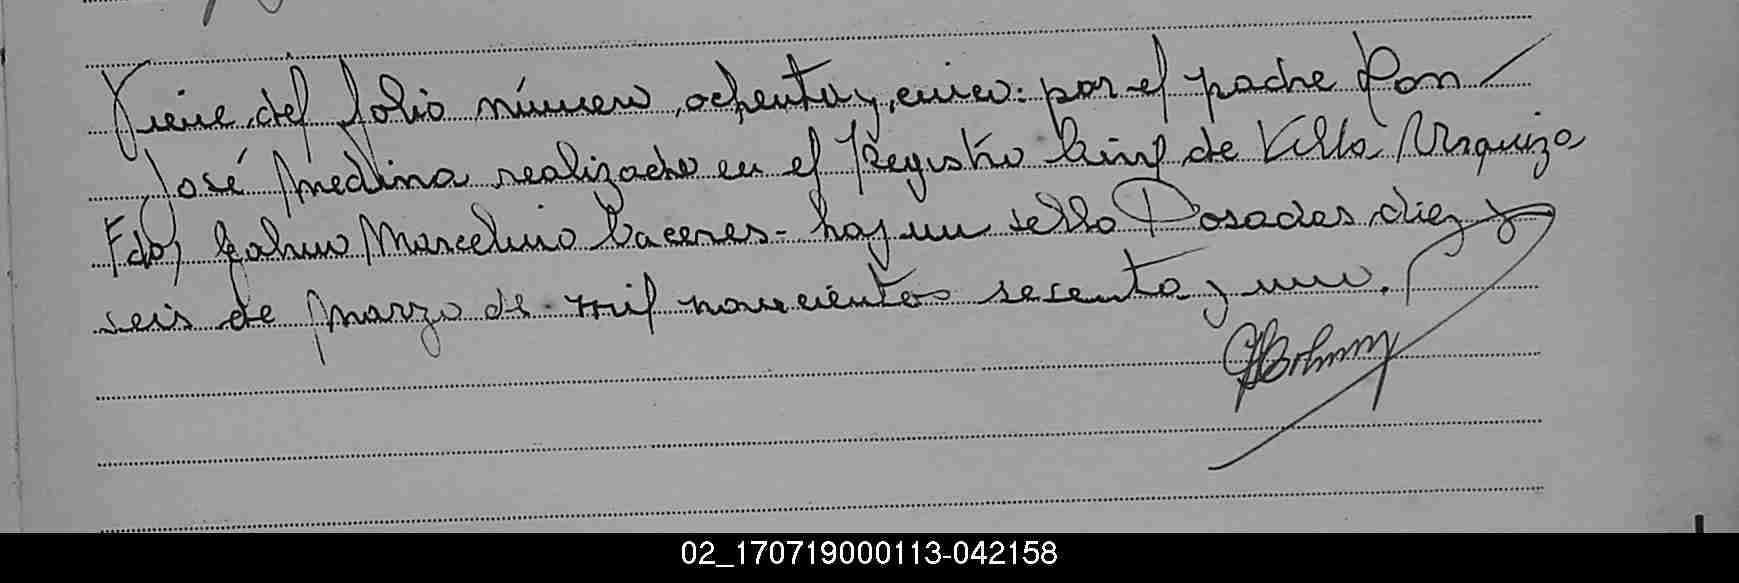 Viene del folio número ochenta y cinco: por el padre Don
José Medina realizado en el Registro Civil de Villa Urquiza
Fdo) Marcelino Caceres - hay un sello Posadas diez y
seis de marzo de mil novecientos sesenta y uno.
02_170719000113-042158